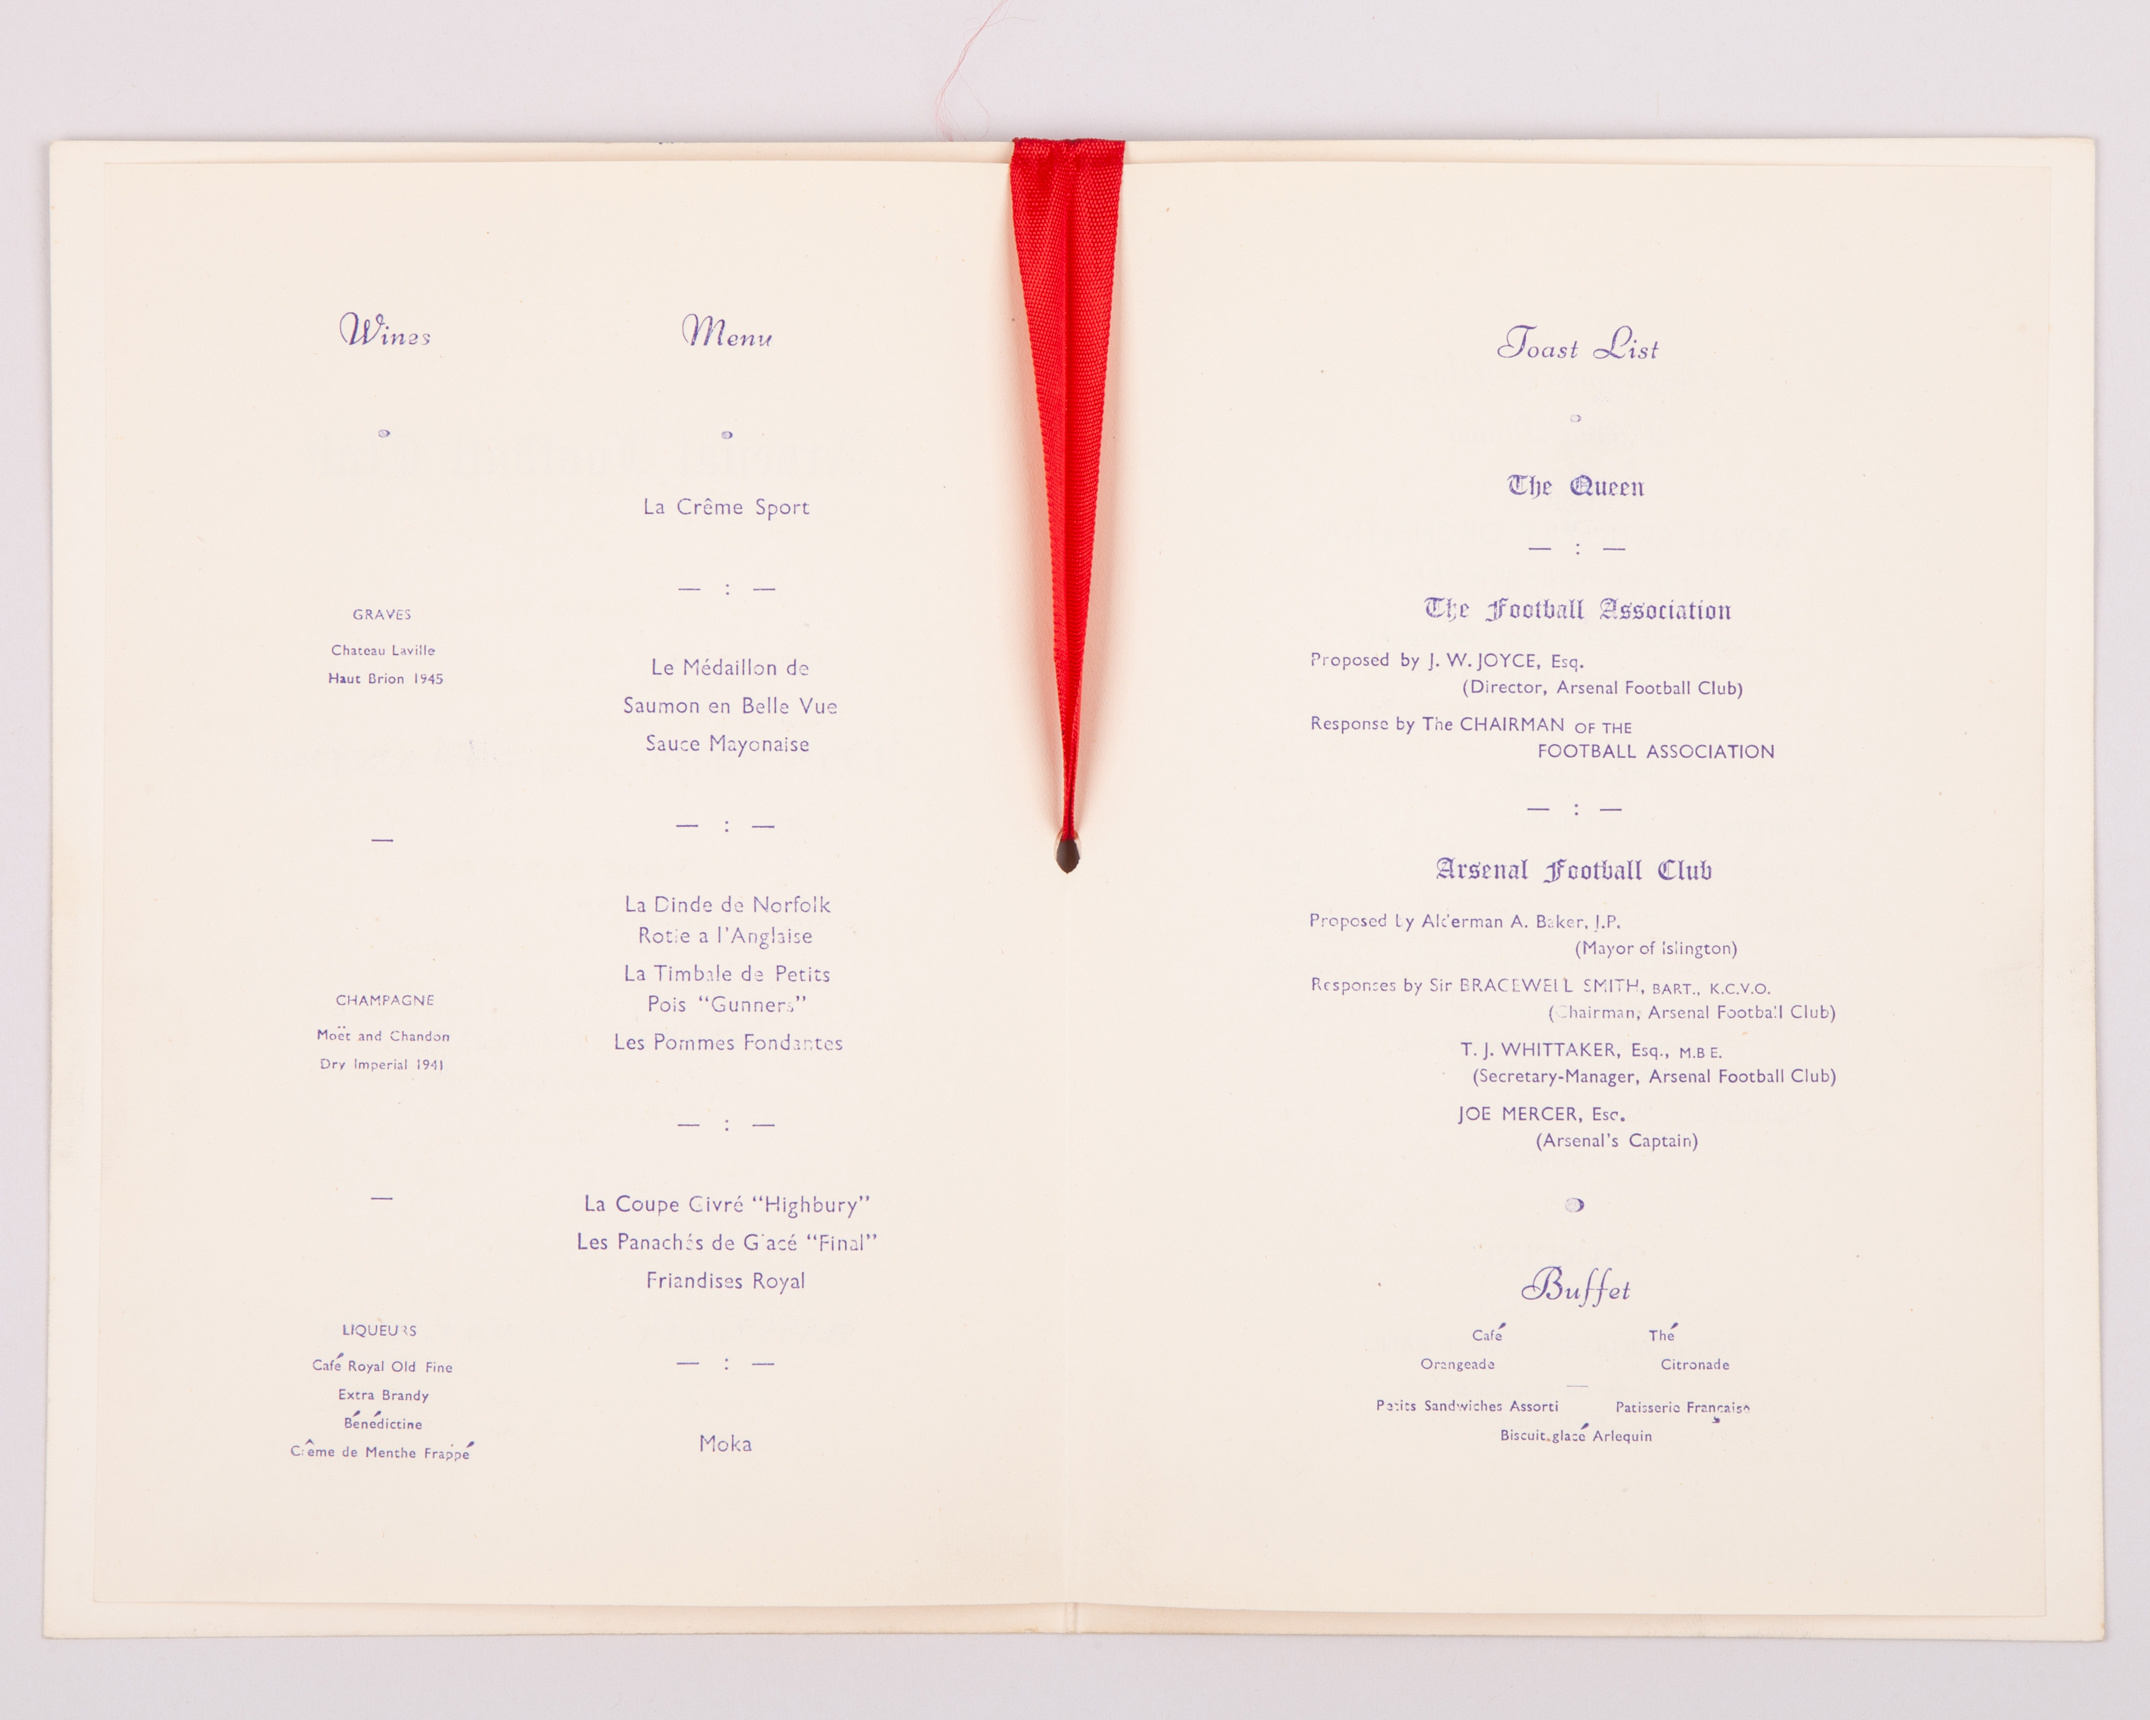 Wines
GRAVES
Chateau Laville
Haut Brion 1945
—
CHAMPAGNE
Moët and Chandon
Dry Imperial 1941
—
LIQUEURS
Café Royal Old Fine
Extra Brandy
Bénédictine
Crême de Menthe Frappé
Menu
La Crême Sport
— : —
Le Médaillon de
Saumon en Belle Vue
Sauce Mayonaise
— : —
La Dinde de Norfolk
Rotie a l'Anglaise
La Timbale de Petits
Pois "Gunners"
Les Pommes Fondantes
— : —
La Coupe Givré "Highbury"
Les Panachés de Glacé "Final"
Friandises Royal
— : —
Moka
Toast List
The Queen
— : —
The Football Association
Proposed by J. W. JOYCE, Esq.
(Director, Arsenal Football Club)
Response by The CHAIRMAN OF THE
FOOTBALL ASSOCIATION
— : —
Arsenal Football Club
Proposed by Alderman A. Baker, J.P.
(Mayor of Islington)
Responses by Sir BRACEWELL SMITH, BART., K.C.V.O.
(Chairman, Arsenal Football Club)
T. J. WHITTAKER, Esq., M.B E.
(Secretary-Manager, Arsenal Football Club)
JOE MERCER, Esq.
(Arsenal's Captain)
Buffet
Café Thé
Orangeade Citronade
—
Petits Sandwiches Assorti Patisserie Française
Biscuit glacé Arlequin